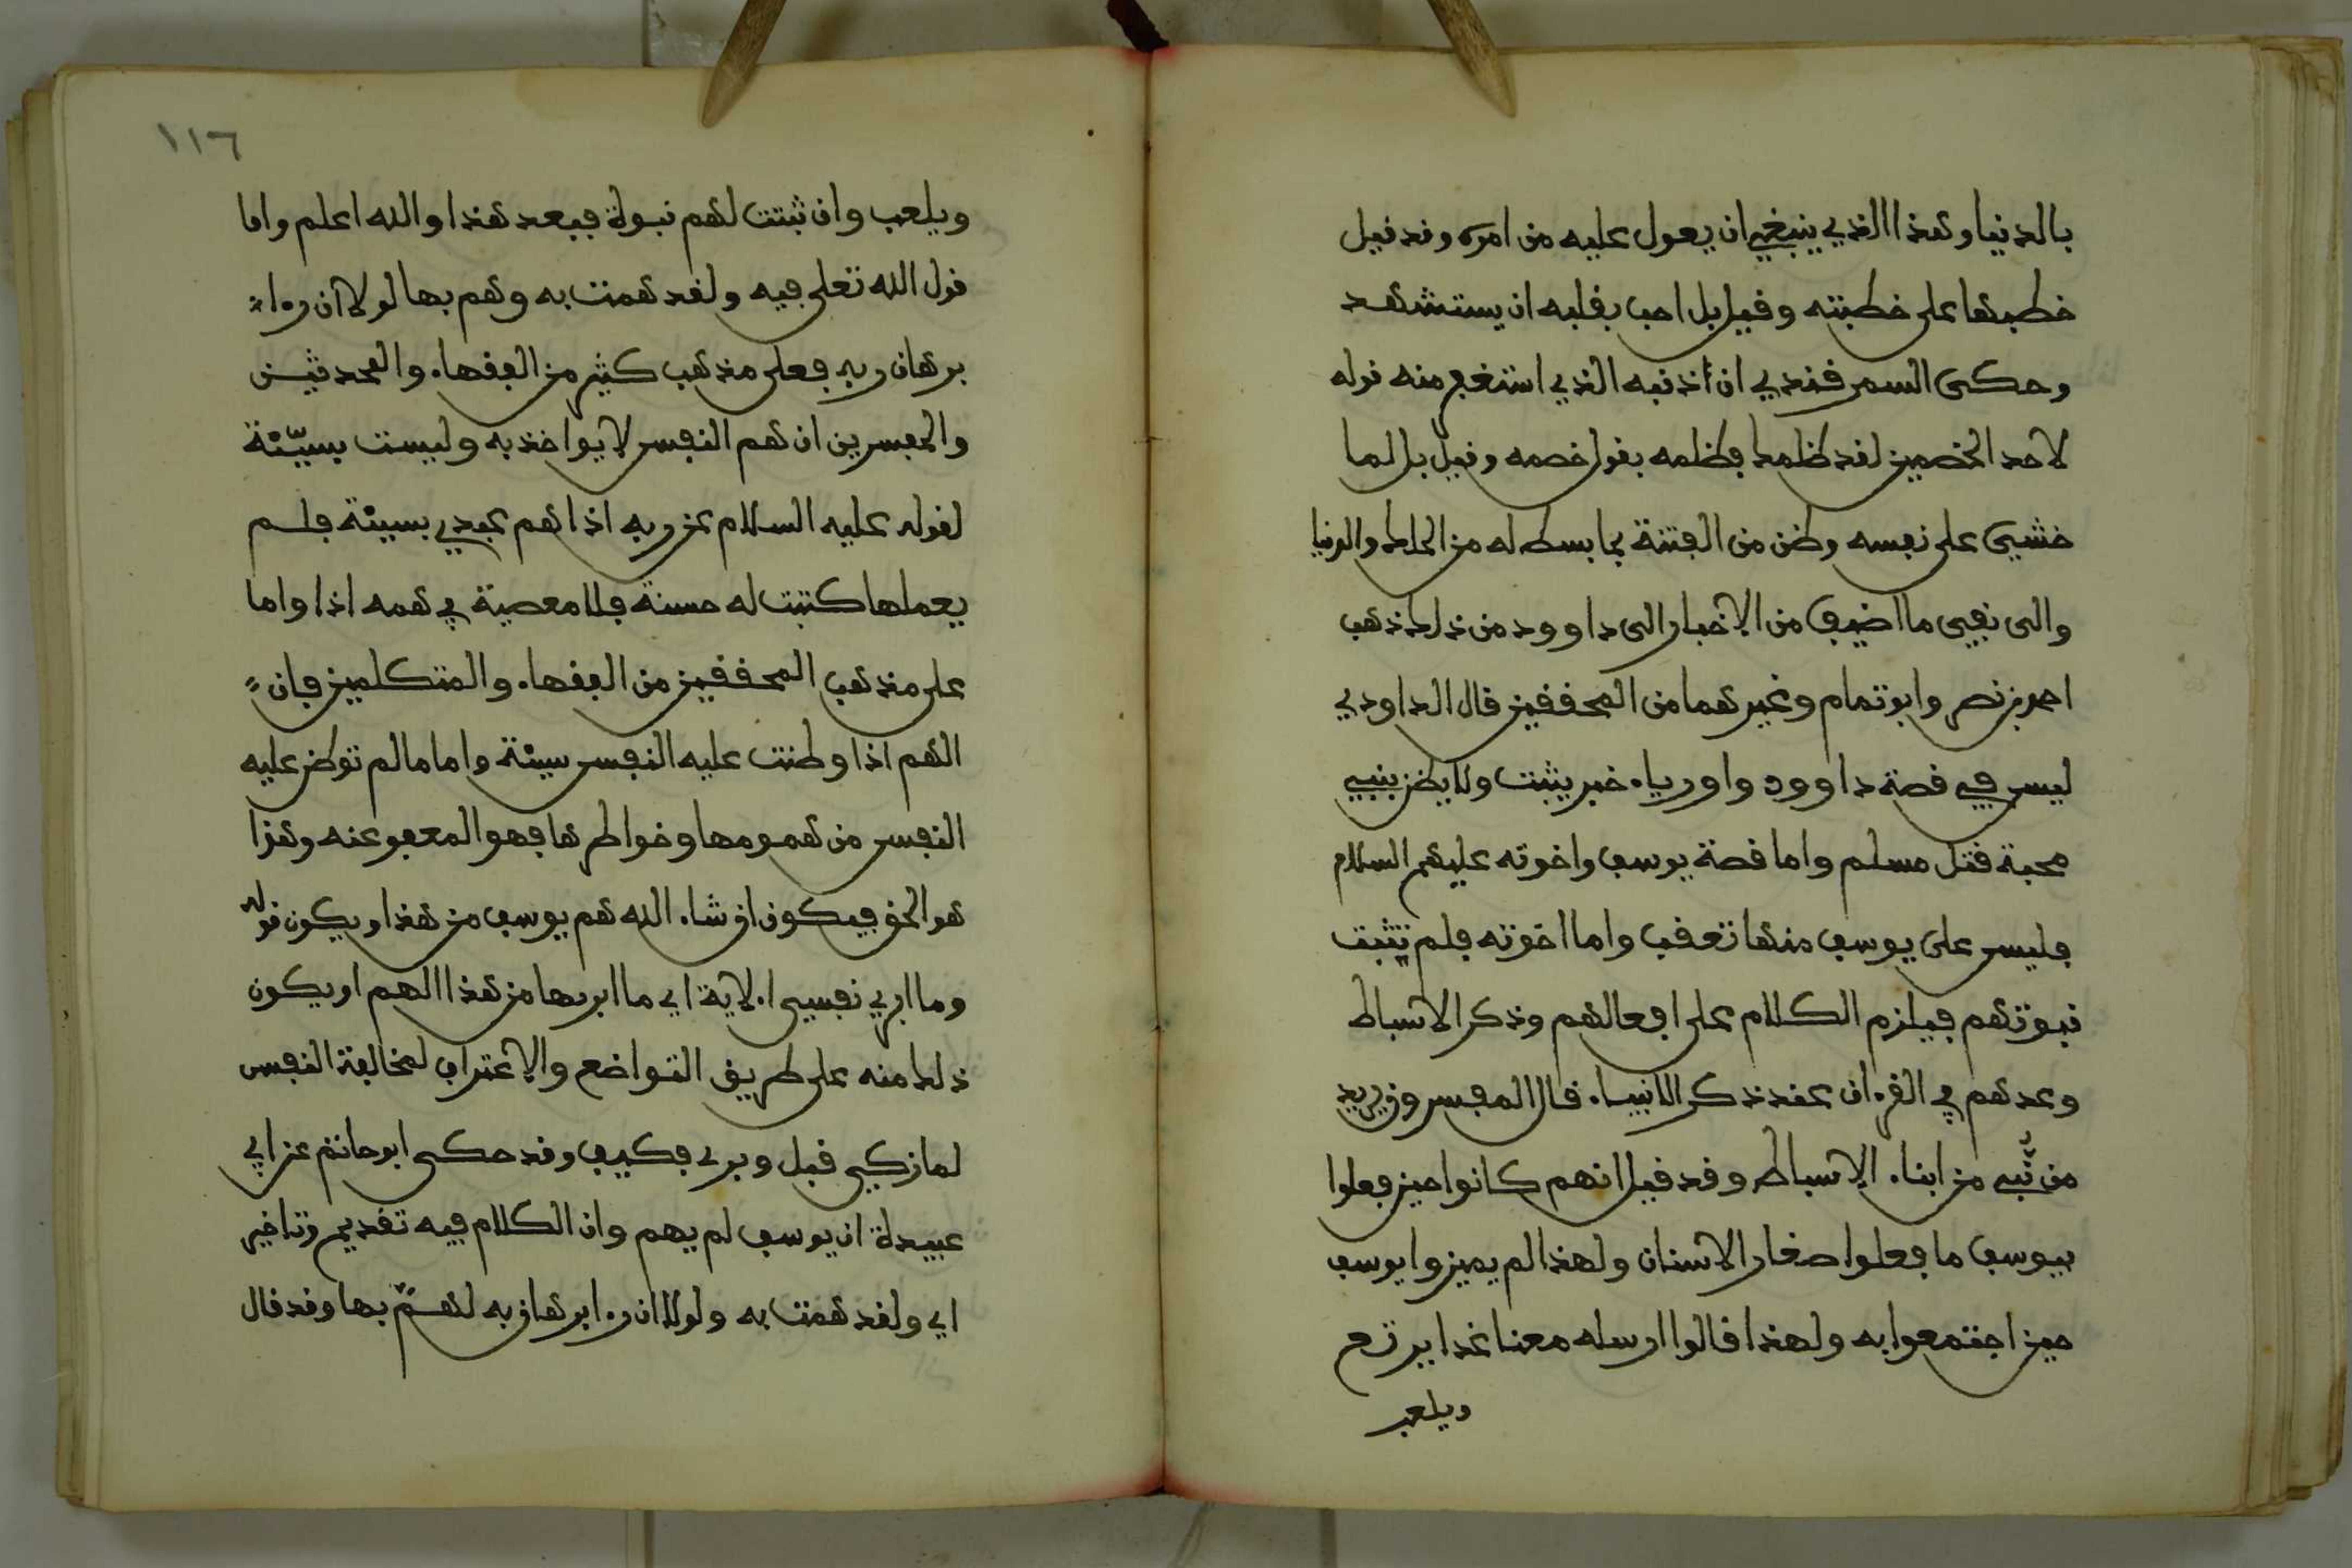 بالدنيا وهذا الذي ينبغي ان يعول عليه من امره وقد قيل
خطبها على خطبته وقيل بل احب بقلبه ان يستشهد
وحكى السمرقندي ان ذنبه الذي استغفر منه قوله
لاحد الخصمين لقد ظلمك فظلمه بقول خصمه وقيل بل لما
خشي على نفسه وظن من الفتنة بما بسط له من الملك والدنيا
والى نفي ما اضيف من الاخبار الى داوود من ذلك ذهب
احمد بن نصر وابو تمام وغيرهما من المحققين قال الداودي
ليس في قصة داوود واورياء خبر يثبت ولا يظن بنبي
محبة قتل مسلم واما قصة يوسف واخوته عليهم السلام
فليس على يوسف منها تعقب واما اخوته فلم تثبت
نبوتهم فيلزم الكلام على افعالهم وذكر الاسباط
وعدهم في القرءان عند ذكر الانبياء قال المفسرون يريد
من نُبّي من ابناء الاسباط وقد قيل انهم كانوا حين فعلوا
بيوسف ما فعلوا صغار الاسنان ولهذا لم يميزوا يوسف
حين اجتمعوا به ولهذا قالوا ارسله معنا غدا يرتع
ويلعب
١١٦
ويلعب وان ثبتت لهم نبوة فبعد هذا والله اعلم واما
قول الله تعلى فيه ولقد همت به وهم بها لولا ان رءا
برهان ربه فعلى مذهب كثير من الفقهاء والمحدثين
والمفسرين ان هم النفس لا يواخذ به وليست بسيّئة
لقوله عليه السلام عن ربه اذا هم عبدي بسيئة فلم
يعملها كتبت له حسنة فلا معصية في همه اذا واما
على مذهب المحققين من الفقهاء والمتكلمين فان
الهم اذا وطنت عليه النفس سيئة واما ما لم توطن عليه
النفس من همومها وخواطرها فهو المعفو عنه وهذا
هو الحق فيكون ان شاء الله هم يوسف من هذا ويكون قوله
وما ابري نفسي الاية اي ما ابريها من هذا الهم او يكون
ذلك منه على طريق التواضع والاعتراف لمخالفة النفس
لما زكي قبل وبري فكيف وقد حكى ابو حاتم عن ابي
عبيدة ان يوسف لم يهم وان الكلام فيه تقديم وتاخير
اي ولقد همت به ولولا ان رءا برهان ربه لهمّ بها وقد قال